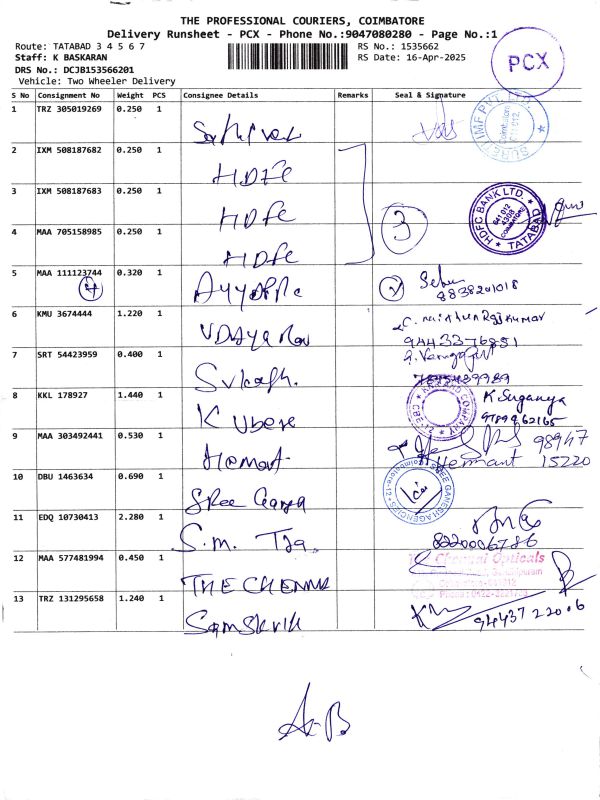 THE PROFESSIONAL COURIERS, COIMBATORE
Delivery Runsheet - PCX - Phone No.:9047080280 - Page No.:1
Route: TATABAD 3 4 5 6 7 RS No.: 1535662
Staff: K BASKARAN RS Date: 16-Apr-2025
DRS No.: DCJB153566201
Vehicle: Two Wheeler Delivery
PCX
S No Consignment No Weight PCS Consignee Details Remarks Seal & Signature
1 TRZ 305019269 0.250 1
2 IXM 508187682 0.250 1 HDFC
3 IXM 508187683 0.250 1 HDFC
HDFC BANK LTD. TATABAD
3
4 MAA 705158985 0.250 1 HDFC
5 MAA 111123744 0.320 1
4
8838201018
6 KMU 3674444 1.220 1
9443376851
7 SRT 54423959 0.400 1
8 KKL 178927 1.440 1 K Ubere K Suganya
9 MAA 303492441 0.530 1 Hemant Hemant 98947 15220
10 DBU 1463634 0.690 1 Sree Ganga
SREE GANESH AGENCIES
11 EDQ 10730413 2.280 1 S.m. Tra
8220006786
12 MAA 577481994 0.450 1 THE CHENNAI
Chennai Opticals
13 TRZ 131295658 1.240 1 Samskrik
94437 22006
A-B